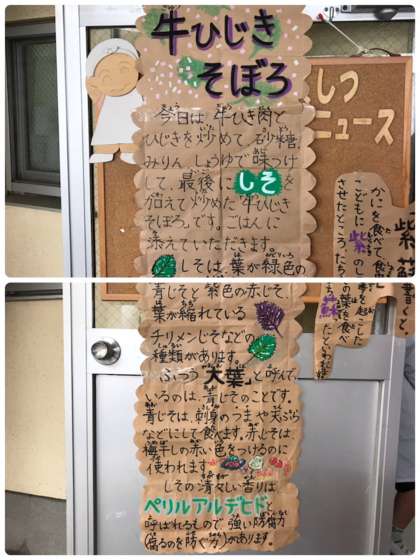 牛ひじき
そぼろ
今日は、牛ひき肉と
ひじきを炒めて、砂糖、
みりん、しょうゆで味つけ
して、最後にしそを
加えて炒めた「牛ひじき
そぼろ」です。ごはんに
添えていただきます。
しそは、葉が緑色の
青じそと紫色の赤じそ、
葉が縮れている
チリメンじそなどの
種類があります。
ふつう「大葉」と呼んで
いるのは、青じそのことです。
青じそは、刺身のつまや天ぷら
などにして食べます。赤じそは、
梅干しの赤い色をつけるのに
使われます。
しその清々しい香りは
ペリルアルデヒドと
呼ばれるもので、強い防腐力
(腐るのを防ぐ力)があります。
しつ
ニュース
かにを食べて食
こどもに紫のし
させたところ、たち